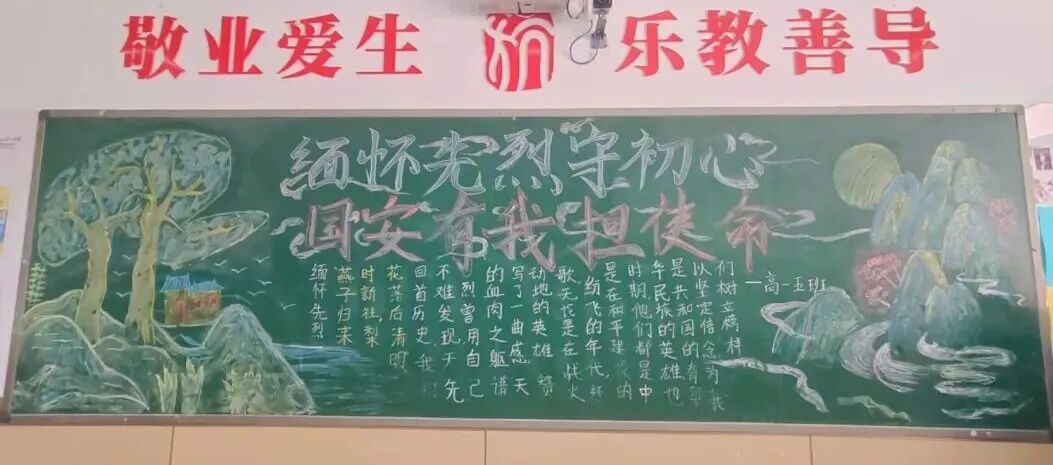 敬业爱生
乐教善导
缅怀先烈守初心
国安有我担使命
缅怀先烈
燕子归来
时新社,梨
花落后清明
回首历史我
不难发现先
烈曾用自己
的血肉之躯谱
写了一曲感天
动地的英雄赞
歌无论是在战火
纷飞的年代还
是在和平建设的
时期他们都是中
华民族的英雄也
是共和国的脊梁
以坚定信念为我
们树立榜样
一高一五班